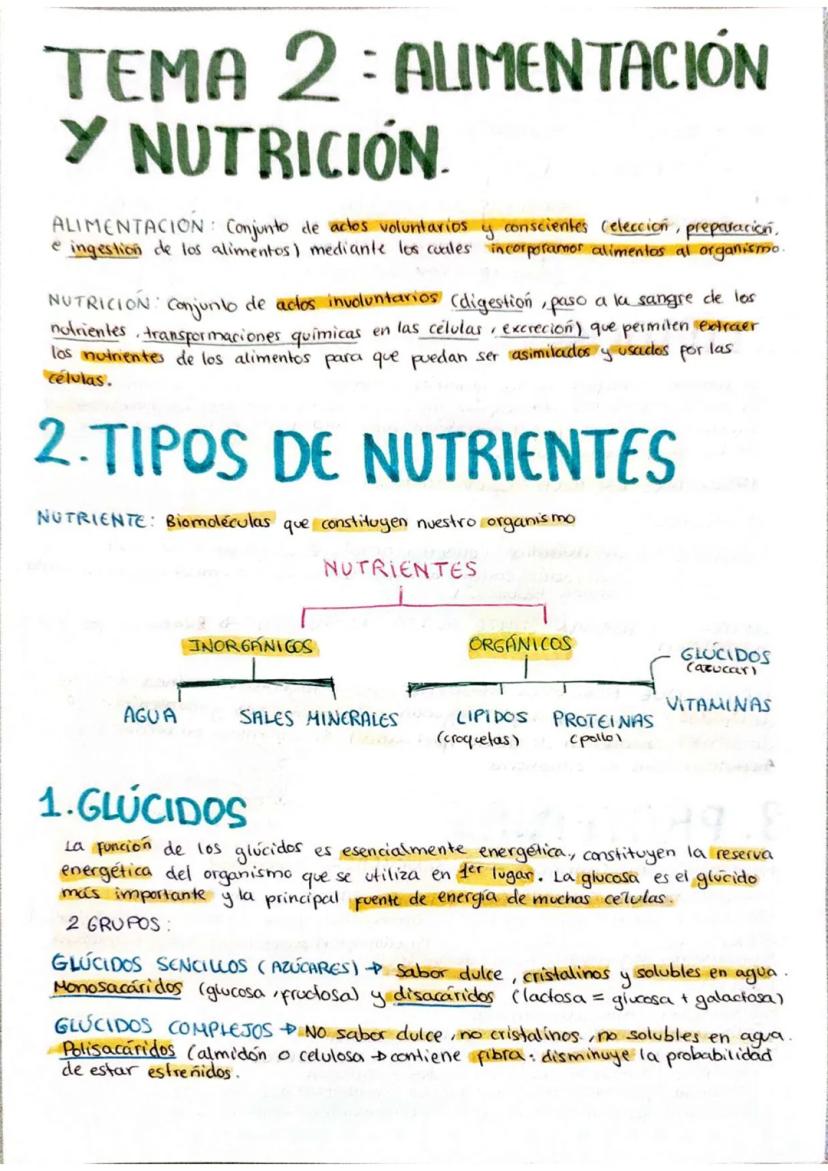 TEMA 2: ALIMENTACIÓN
Y NUTRICIÓN.
ALIMENTACIÓN: Conjunto de actos voluntarios y conscientes (elección, preparación,
e ingestión de los alimentos) mediante los cuales incorporamos alimentos al organismo.
NUTRICIÓN: Conjunto de actos involuntarios (digestión, paso a la sangre de los
nutrientes, transformaciones químicas en las células, excreción) que permiten extraer
los nutrientes de los alimentos para que puedan ser asimilados y usados por las
células.
2. TIPOS DE NUTRIENTES
NUTRIENTE: Biomoléculas que constituyen nuestro organismo
NUTRIENTES
INORGÁNICOS ORGÁNICOS GLÚCIDOS
(azucar)
AGUA SALES MINERALES LIPIDOS PROTEINAS VITAMINAS
(croquetas) (pollo)
1. GLÚCIDOS
La función de los glúcidos es esencialmente energética, constituyen la reserva
energética del organismo que se utiliza en 1er lugar. La glucosa es el glúcido
más importante y la principal fuente de energía de muchas células.
2 GRUPOS:
GLÚCIDOS SENCILLOS (AZÚCARES) → Sabor dulce, cristalinos y solubles en agua.
Monosacáridos (glucosa, fructosa) y disacáridos (lactosa = glucosa + galactosa)
GLÚCIDOS COMPLEJOS → NO sabor dulce, no cristalinos, no solubles en agua.
Polisacáridos (almidón o celulosa → contiene fibra: disminuye la probabilidad
de estar estreñidos.